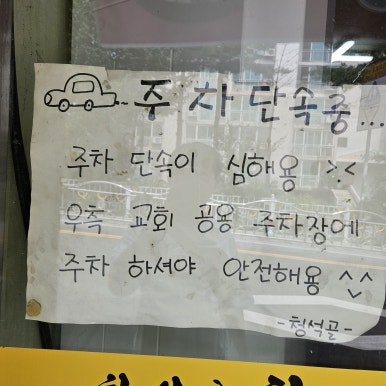 주차단속중...
주차 단속이 심해용 >.<
우측 교회 공용 주차장에
주차 하셔야 안전해용 ^_^
-청석골-